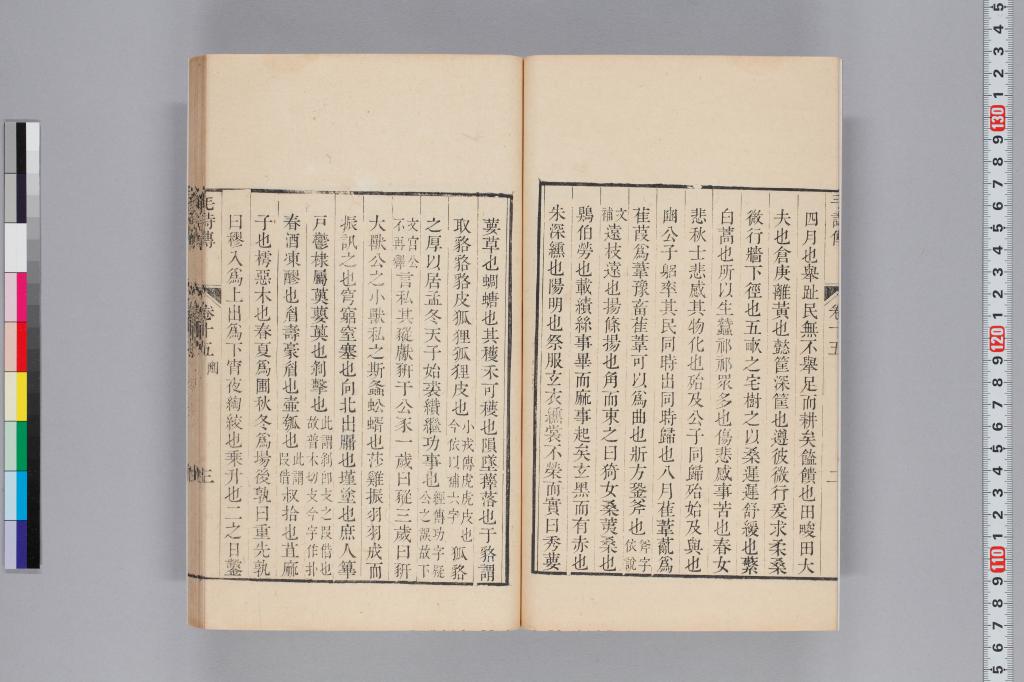 四月也舉趾民無不舉足而耕矣饁饋也田畯田大
夫也倉庚離黃也懿筐深筐也遵彼微行爰求柔桑
微行牆下徑也五畝之宅樹之以桑遲遲舒緩也蘩
白蒿也所以生蠶祁祁眾多也傷悲感事苦也春女
悲秋士悲感其物化也殆及公子同歸殆始及與也
豳公子躬率其民同時出同時歸也八月萑葦薍為
萑葭為葦豫畜萑葦可以為曲也斨方銎斧也斧字依說
文補遠枝遠也揚條揚也角而束之曰猗女桑荑桑也
鵙伯勞也載績絲事畢而麻事起矣玄黑而有赤也
朱深纁也陽明也祭服玄衣纁裳不榮而實曰秀葽
葽草也蜩螗也其穫禾可穫也隕墜蘀落也于貉謂
取貉貉貉皮狐狸狐狸皮也小戎傳虎虎皮也今依以補六字狐貉
之厚以居孟冬天子始裘纘繼功事也經傳功字疑公之誤故下
文言公不再舉言私其豵獻豜于公豕一歲曰豵三歲曰豜
大獸公之小獸私之斯螽蚣蝑也莎雞振羽羽成而
振訊之也穹窮窒塞也向北出牖也墐塗也庶人篳
戶鬱棣屬薁蘡薁也剝擊也此謂剝即攴之叚借也故普木切攴今字作扑
春酒凍醪也眉壽豪眉也壺瓠也此謂叚借叔拾也苴麻
子也樗惡木也春夏為圃秋冬為場後孰曰重先孰
曰穋入為上出為下宵夜綯絞也乘升也二之日鑿
毛詩傳
卷十五
豳
三
卷十五
二